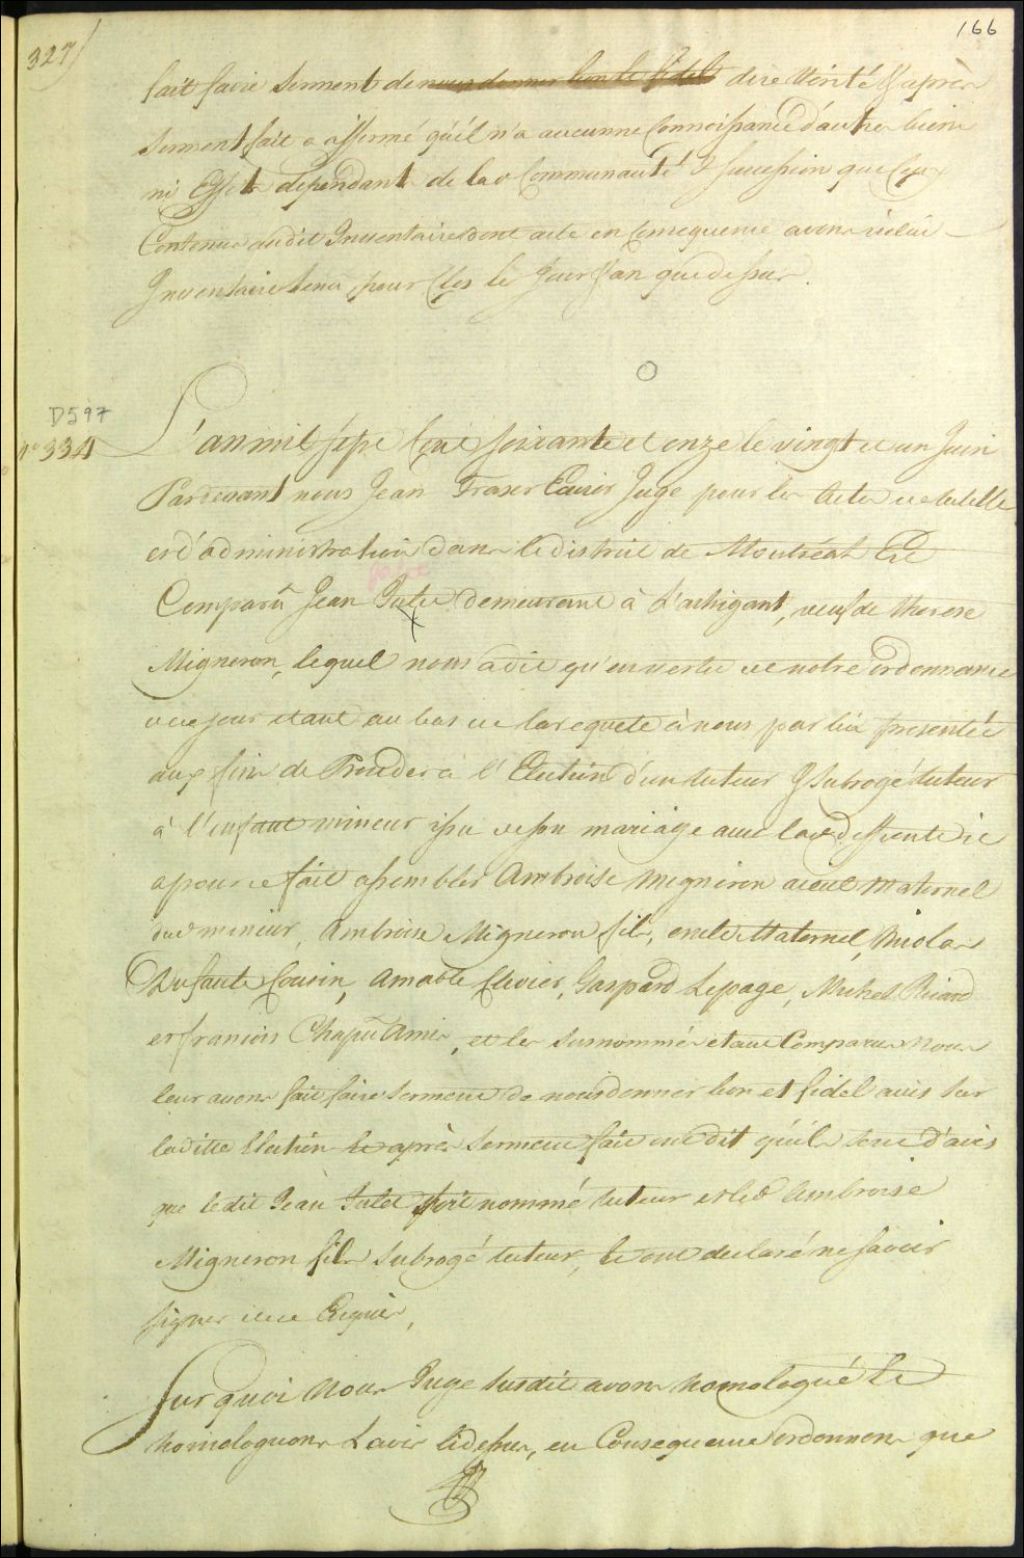 166
327/
fait faire serment de nous donner bon et fidel dire Vérité & après
serment fait a affirmé qu'il n'a aucunne Connoissance d'autres biens
ni Effets dependants de la d Communauté & succession que Ceux
Contenus audit Inventaire dont acte en Consequence avons icelui
Inventaire tenu pour Clos le Jour & an que dessus.
D597
N° 334
L'an mil sept Cent soixante et onze le vingt et un Juin
Pardevant nous Jean Fraser Ecuier Juge pour les Actes de tutelle
et d'administration dans le district de Montréal Est
Comparû Jean demeurant à L'achigant, veuf de therese
Migneron, lequel nous a dit qu'en vertu de notre ordonnance
de ce jour etant au bas de la requete à nous par lui presentée
aux fins de Proceder à l'Election d'un tuteur & subrogé tuteur
à l'enfant mineur issu de son mariage avec lad deffunte ie
a pour ce fait assembler Ambroise Migneron aieul maternel
dud mineur, Ambroise Migneron fils, oncle Maternel, Nicolas
Dufault Cousin, Amable Clevier, Gaspard Lepage, Michel Ricard
et francois Chaput Amis, et les susnommés etant Comparus Nous
leur avons fait faire serment de nous donner bon et fidel avis sur
laditte Election & après serment fait ont dit qu'ils sont d'avis
que ledit Jean soit nommé tuteur et led Ambroise
Migneron fils subrogé tuteur, & ont declaré ne savoir
signer de ce Enquis,
Sur quoi Nous Juge susdit avons homologué &
homologuons L'avis cidessus, en Consequence ordonnons que